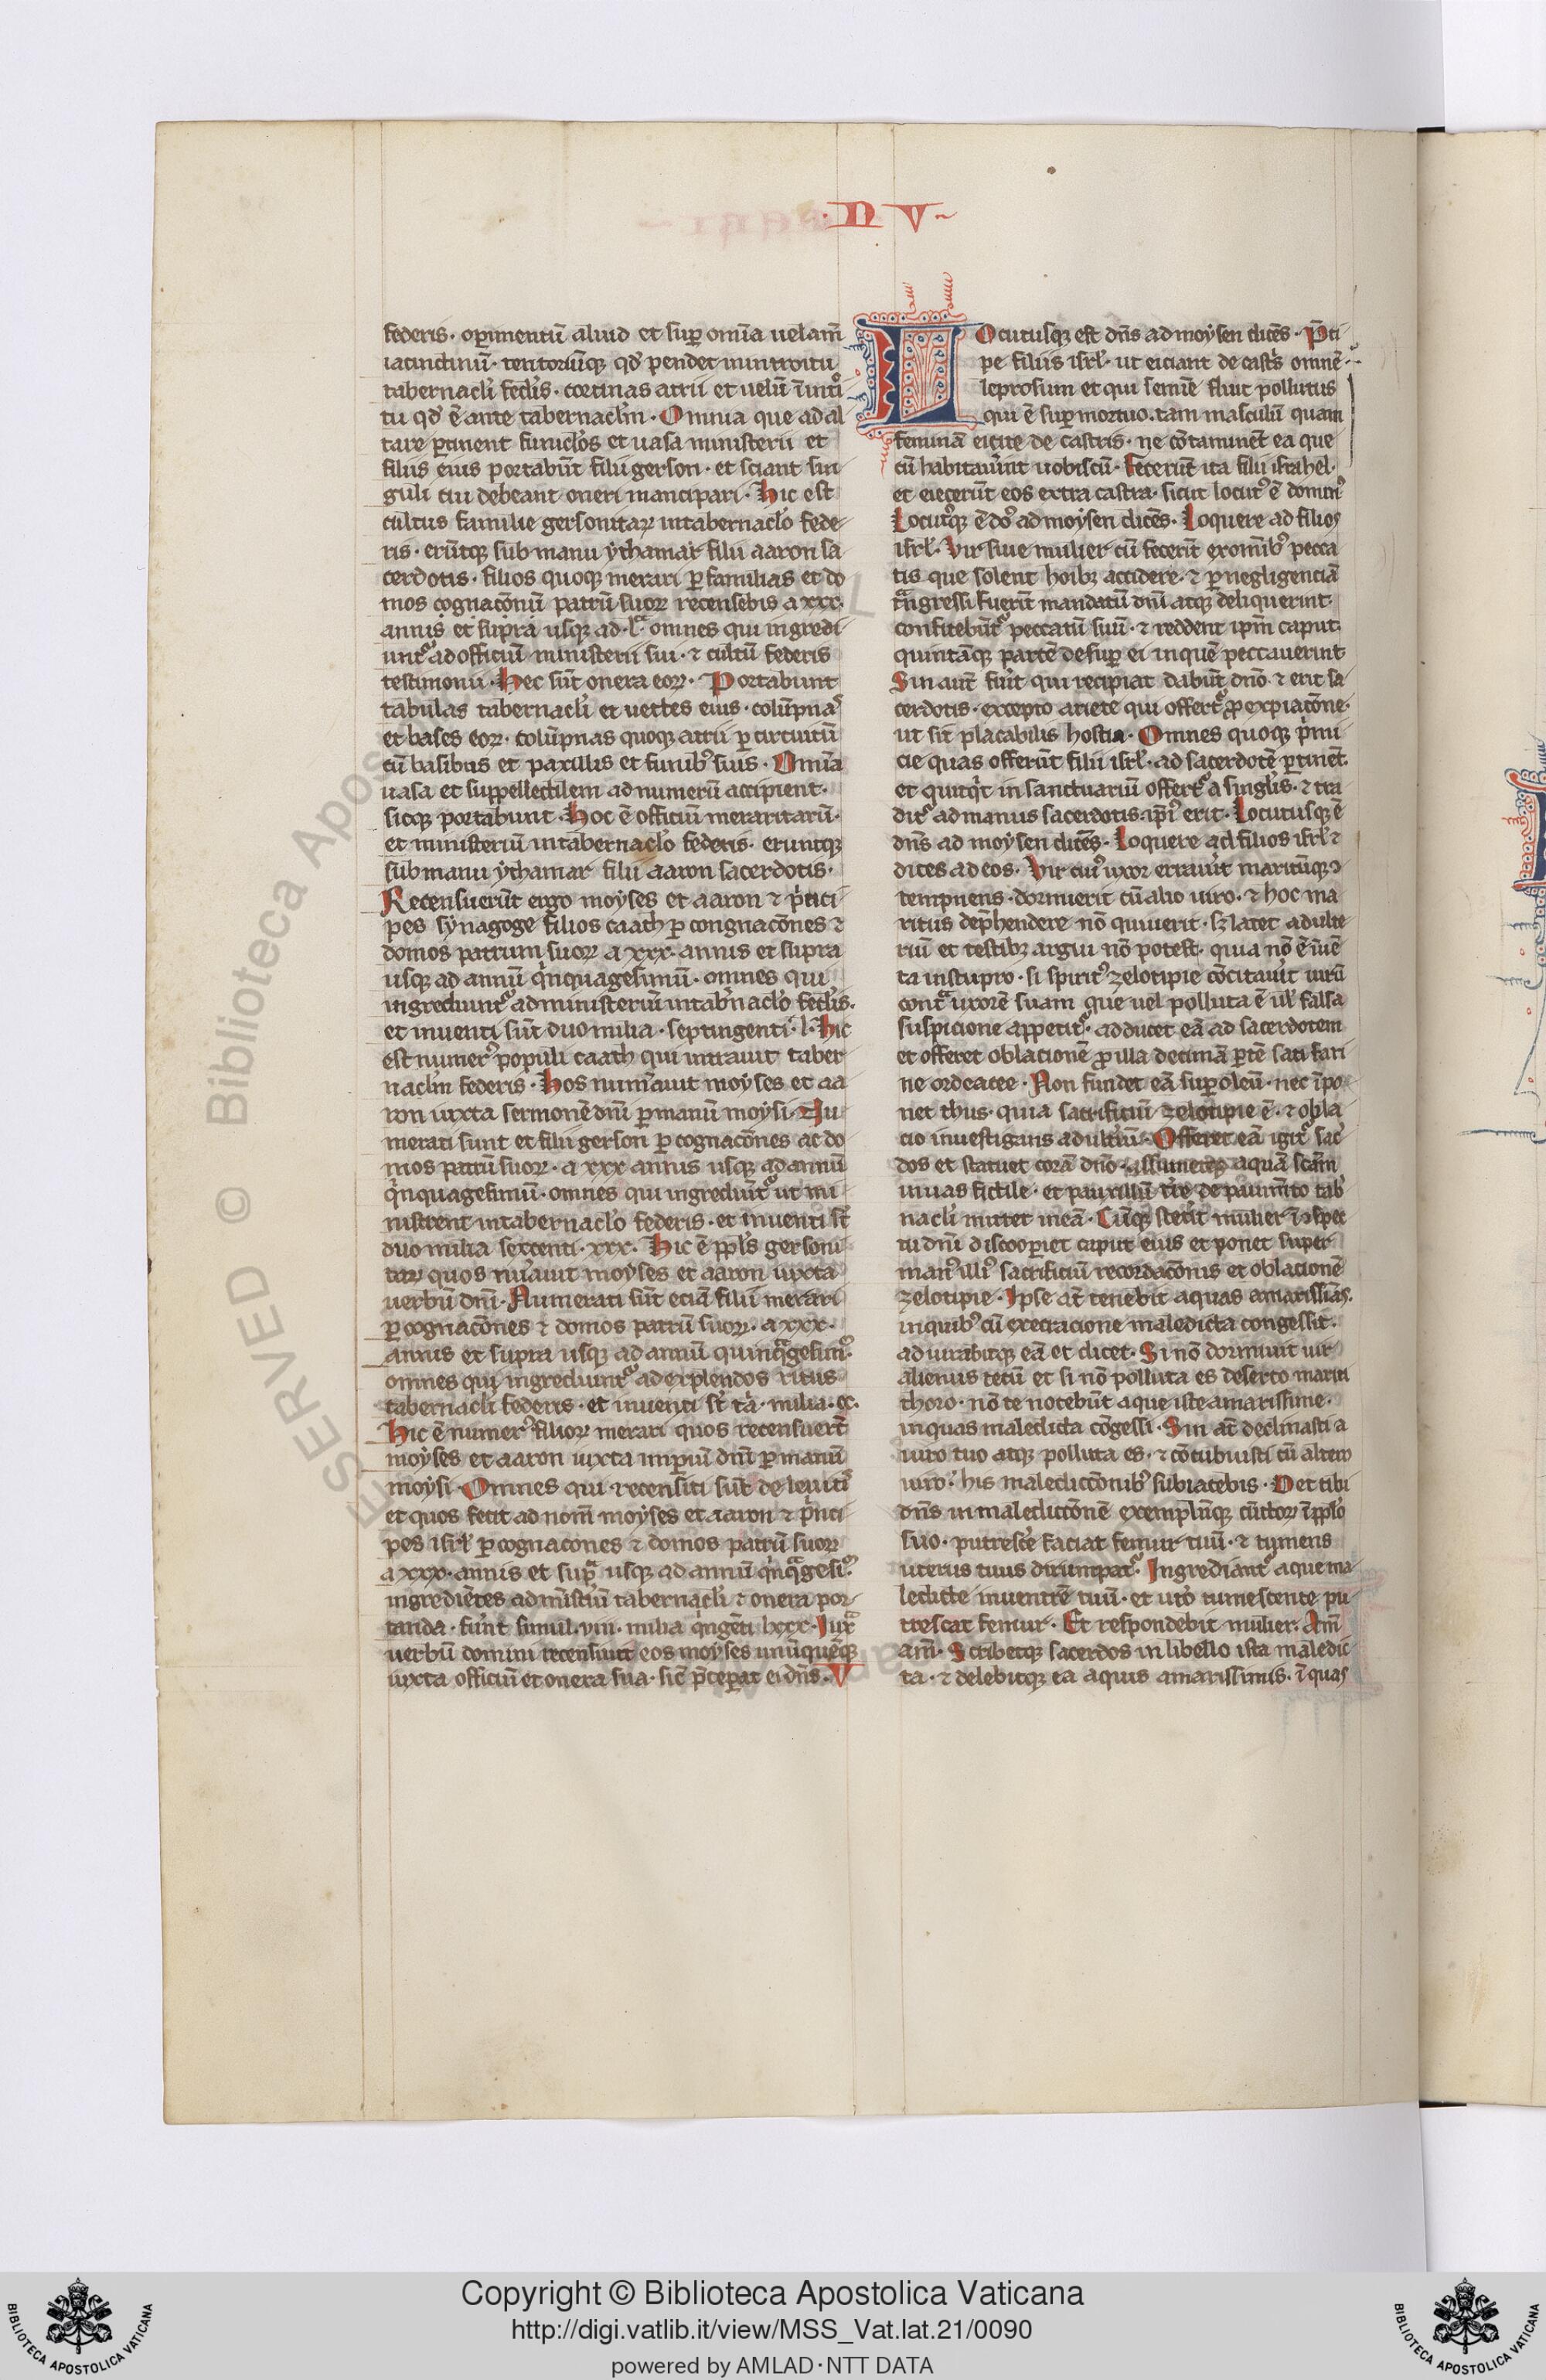 · N V ·
federis · op̱imentū aliud et sup̱ om̄ia uelam̄
iacinctinū · tentoriūqꝫ qd̓ pendet in introitu
tabernacl̓i fed̓is · cortinas atrii et uelū ī introi
tu qd̓ ē ante tabernacl̓m · Omnia que ad al
tare p̱tinent funicl̓os et uasa ministerii et
filiis eius portabūt filii gerson · et sciant sin
guli cui debeant oneri mancipari · Hic est
cultus familie gersonitaꝝ in tabernacl̓o fede
ris · erūtqꝫ sub manu ythamar filii aaron sa
cerdotis · filios quoqꝫ merari p̱ familias et do
mos cognac̄onū patrū suoꝝ recensebis a xxx·
annis et supra usqꝫ ad ·l· omnes qui ingredi
unt᷑ ad officiū ministerii sui · ⁊ cultū federis
testimonii · Hec sūt onera eoꝝ · Portabunt
tabulas tabernacl̓i et uectes eius · colūpnas
et bases eoꝝ · colūpnas quoqꝫ atrii p̱ circuitū
cū basibus et paxillis et funibꝰ suis · Omīa
uasa et suppellectilem ad numerū accipient·
sicqꝫ portabunt · Hoc ē officiū meraritarū·
et ministeriū in tabernacl̓o federis · eruntqꝫ
sub manu ythamar filii aaron sacerdotis·
Recensuerūt ergo moyses et aaron ⁊ p̓nci
pes synagoge filios caath p̱ congnac̄ones ⁊
domos patrum suoꝝ a xxx· annis et supra
usqꝫ ad annū q̓nquagesimū · omnes qui
ingrediunt᷑ ad ministeriū in tab̓nacl̓o fed̓is·
et inuenti sūt duo milia · septingenti ·l· Hic
est numerꝰ populi caath qui intrauit taber
nacl̓m federis · Hos num̓auit moyses et aa
ron iuxta sermonē dn̄i p̱ manū moysi · Nu
merati sunt et filii gerson p̱ cognac̄ones ac do
mos patrū suoꝝ · a xxx annis usqꝫ ad annū
q̓nquagesimū · omnes qui ingrediūt᷑ ut mi
nistrent in tabernacl̓o federis · et inuenti sūt
duo milia sexcenti · xxx· Hic ē ppl̓s gersoni
taꝝ quos nūauit moyses et aaron iuxta
uerbū dn̄i · Numerati sūt eciā filii merari
p̱ cognac̄ones ⁊ domos patrū suoꝝ · a xxx·
annis et supra usqꝫ ad annū quinqᷓgesimū·
omnes qui ingrediunt᷑ ad explendos ritus
tabernacli federis · et inuenti sūt t̓a · milia · cc·
Hic ē numerꝰ filioꝝ merari quos recensuerūt
moyses et aaron iuxta imp̱iū dn̄i p̱ manū
moysi · Omnes qui recensiti sūt de leuitis
et quos fecit ad nom̄ moyses et aaron ⁊ p̓nci
pes isrl̓ p̱ cognacones ⁊ domos patrū suoꝝ
a xxx· annis et supᷓ usqꝫ ad annū q̓nqᷓgesiꝰ
ingrediētes ad mīst̓iū tabernacl̓i ⁊ onera por
tanda · fuīt simul · viii · milia q̓ngēti lxxx· Iuxᷓ
uerbū domini recensuit eos moyses unūquēqꝫ
iuxta officiū et onera sua · sic̄ p̄cep̱at ei dn̄s · V
Locutusqꝫ est dn̄s ad moysen dicēs · P̄ci
pe filiis isrl̓ · ut eiciant de castris omnē
leprosum et qui semīe fluit pollutus
qui ē sup̱ mortuo · tam masculū quam
feminā eicite de castris · ne cōtaminēt ea que
cū habitauīnt uobiscū · Fecerūt ita filii israhel·
et eiecerūt eos extra castra · sicut locutꝰ ē domin̓
Locutꝰqꝫ ē do᷑ ad moysen dicēs · Loquere ad filios
isrl̓ · Vir siue mulier cū fecerīt ex om̄ibꝰ pecca
tis que solent hoībꝫ accidere · ⁊ p̱ negligenciā
tᷓnsgressi fuerīt mandatū dn̄i atqꝫ deliquerint
confitebūt᷑ peccatū suū · ⁊ reddent ip̄m caput
quintāqꝫ partē desup̱ ei in quē peccauerint
Sin aut̄ fuīt qui recipiat dabūt dn̄o · ⁊ erit sa
cerdotis · excepto ariete qui offert᷑ ꝓ expiac̄one·
ut sit placabilis hostia · Omnes quoqꝫ p̓mi
cie quas offerūt filii isrl̓ · ad sacerdotē p̱tinēt
et quicq̓d in sanctuariū offert᷑ a singl̓is · ⁊ tra
dit᷑ ad manus sacerdotis · ip̄iꝰ erit · Locutusqꝫ ē
dn̄s ad moysen dicēs · Loquere ad filios isrl̓ ⁊
dices ad eos · Vir cuiꝰ uxor errauīt maritūqꝫ ꝯ
tempnens · dormierit cū alio uiro · ⁊ hoc ma
ritus dep̄hendere nō quiuerit · sꝫ latet adulte
riū et testibꝫ argui nō potest · quia nō ē īuē
ta in stupro · si spiritꝰ zelotipie cōcitauīt uirū
contᷓ uxorē suam que uel polluta ē ul̓ falsa
suspicione appetit᷑ · adducet eā ad sacerdotem
et offeret oblacionē ꝓ illa decimā p̱tē sati fari
ne ordeacee · Non fundet eā sup̱ oleū · nec īpo
net thus · quia sacrificiū zelotipie ē · ⁊ obla
cio inuestigans adult̓iū · Offeret eā igit᷑ sac̓
dos et statuet corā dn̄o · assumetqꝫ aquā scām
in uas fictile · et pauxillū t̓re de pauim̄to tab̓
nacl̓i mittet in eā · Cūqꝫ stet̓it mulier ī ꝯspec
tu dn̄i discoop̱iet caput eius et ponet super
manꝰ illiꝰ sacrificiū recordac̄onis et oblacionē
zelotipie · Ipse at̄ tenebit aquas amarissīas·
in quibꝰ cū execracione maledicta congessit·
ad iurabitqꝫ eā et dicet · Si nō dormiuit uir
alienus tecū et si nō polluta es deserto mariti
thoro · nō te nocebūt aque iste amarissime·
in quas maledicta cōgessi · Sin at̄ declinasti a
uiro tuo atqꝫ polluta es · ⁊ cōcubuisti cū altero
uiro · his maledicc̄onibꝰ subiacebis · Det tibi
dn̄s in maledicc̄onē exemplūqꝫ cūctoꝝ ī ppl̓o
suo · putresc̓e faciat femur tuū · ⁊ tumens
uterus tuus dirumpat᷑ · Ingrediant᷑ aque ma
ledicte in uentrē tuū · et ut̓o tumescente pu
trescat femur · Et respondebit mulier · Am̄
am̄ · Scribetqꝫ sacerdos in libello ista maledic
ta · ⁊ delebitqꝫ ea aquis amarissimis · ī quas
© Biblioteca Apos
SERVED
Copyright © Biblioteca Apostolica Vaticana
http://digi.vatlib.it/view/MSS_Vat.lat.21/0090
powered by AMLAD·NTT DATA
BIBLIOTECA APOSTOLICA VATICANA
BIBLIOTECA APOSTOLICA VATICANA